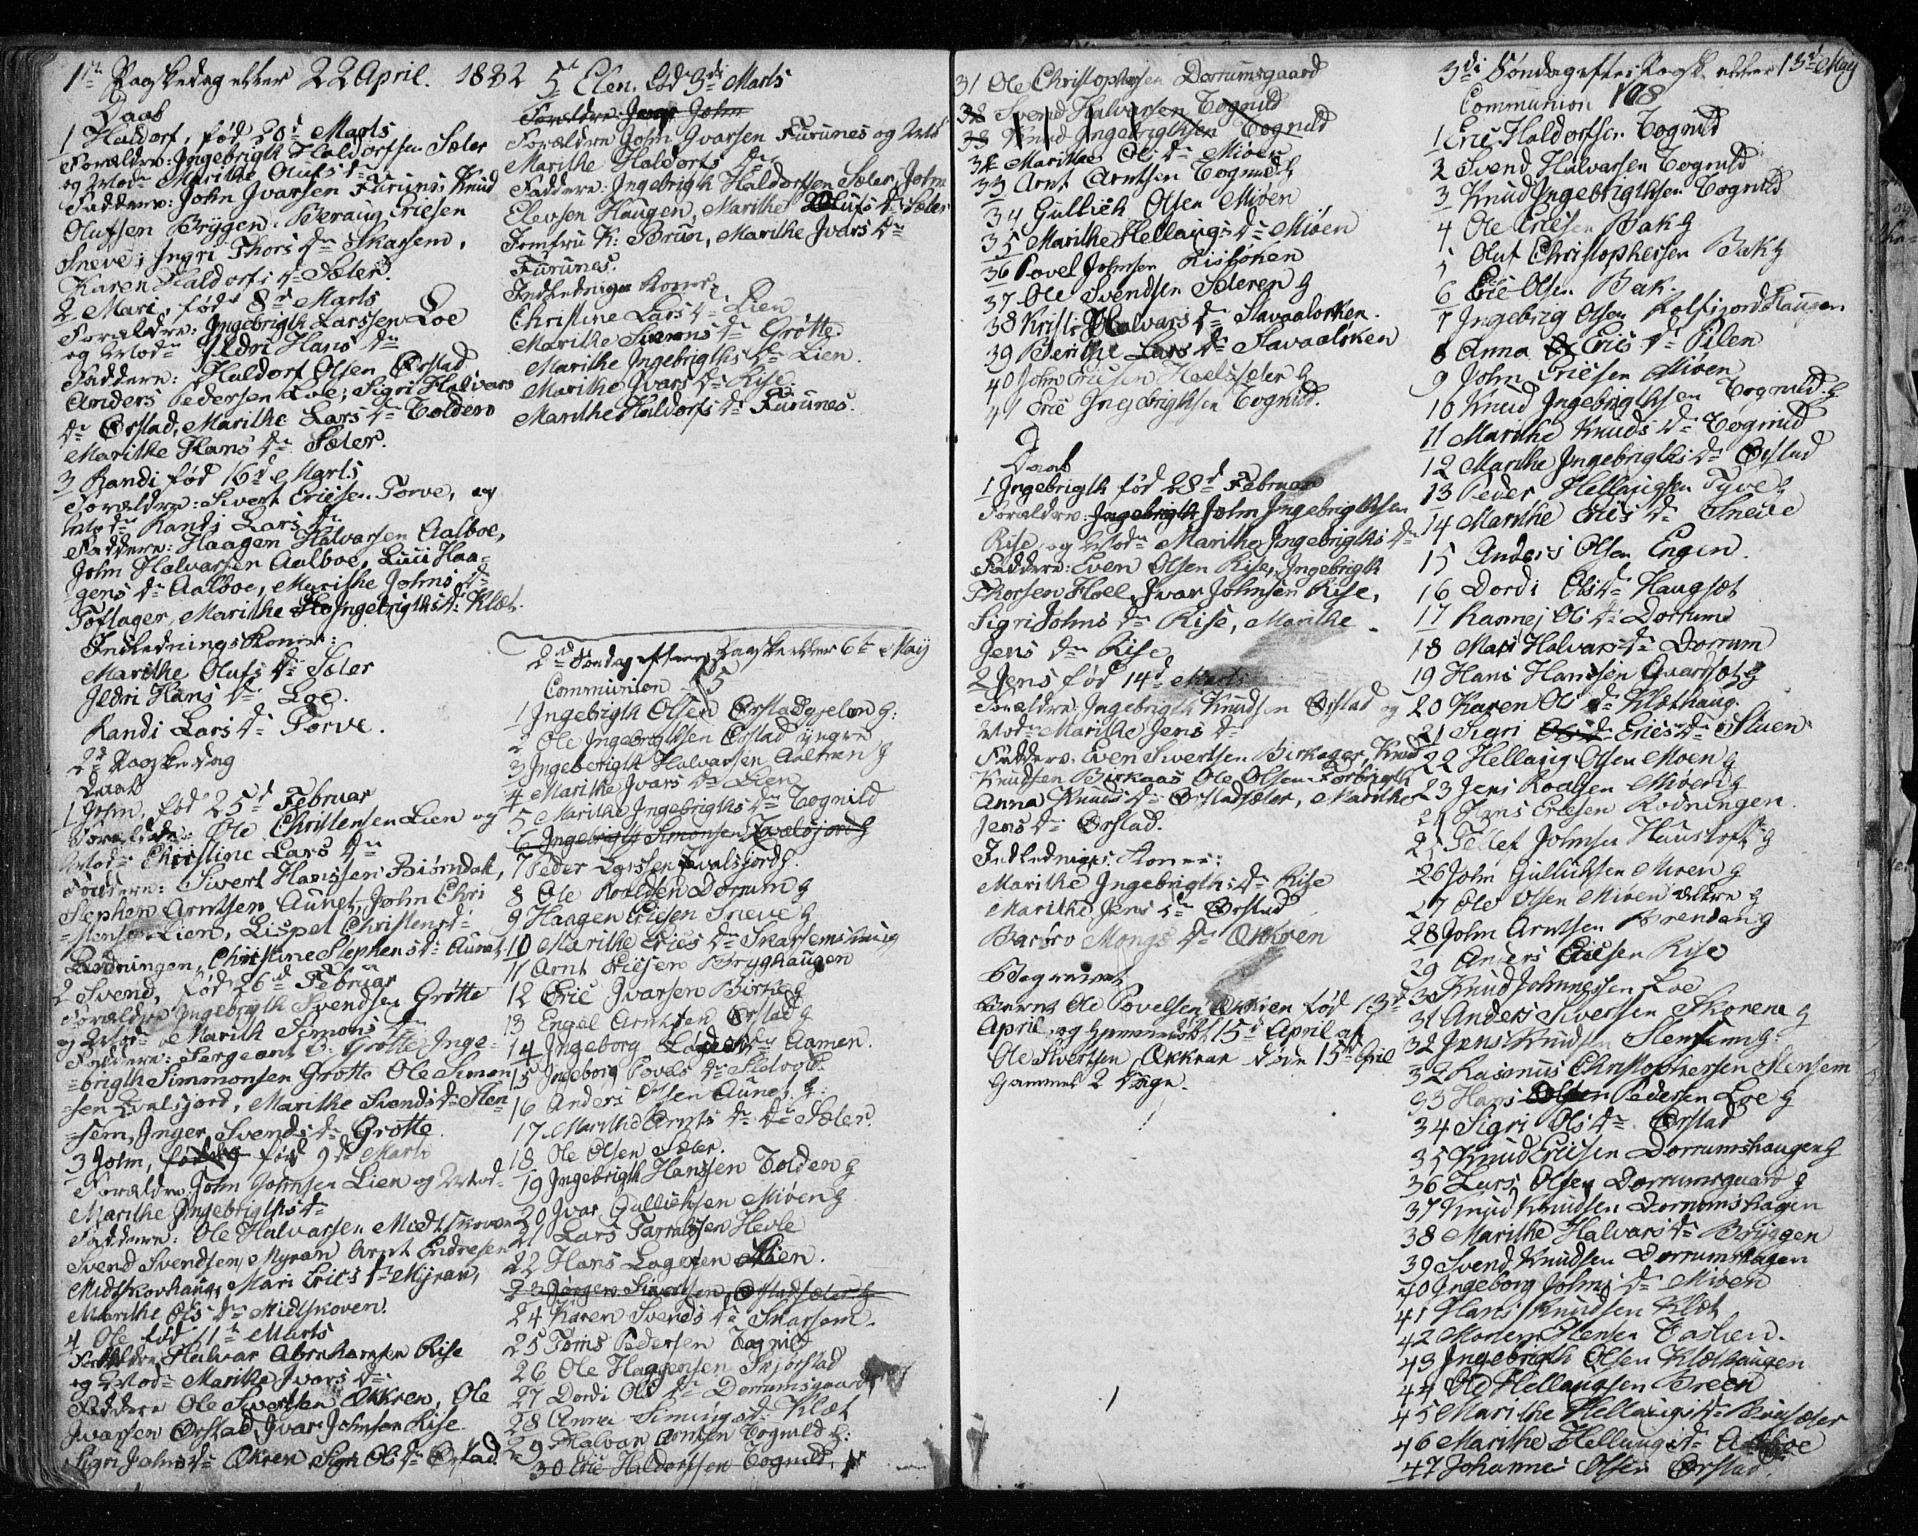 1ste Paaskedag eller 22 April. 1832
Daab
1 Haldorf, fød 20d Marts
Forældre: Ingebrigth Haldorfsen Sæter
og Modn Marithe Olufs dn
Faddere: John Jvarsen Furunes Knud
Olufsen Bryggen. Beraug Eriesen
Sneve; Ingri Thors dn Skarsem,
Karen Haldorfs dn Sæter.
2 Mari, fød 8d Marts
Forældre: Ingebrigth Larssen Loe
og Modn Jldri Hans dn
Faddere: Haldorf Olsen Ørstad
Anders Pedersen Loe; Sigri Halvars
dn Ørstad, Marithe Lars dn Tolden
Marithe Hans dn Sæter.
3 Randi fød 16d Marts
Forældre: Sivert Eriesen Torve, og
Modn Randi Lars dn
Faddere: Haagen Halvarsen Aalboe,
John Halvarsen Aalboe, Haa-
gens dn Aalboe, Marithe Johns dn
Toftager, Marithe Ingebrigths dn Klæt.
Indledningskoner:
Marithe Olufs dn Sæter
Jldri Hans dn Loe.
Randi Lars dn Torve.
2d Paaskedag
Daab
1 John, fød 25d Februar
Forældre: Ole Christensen Lien og
Modn Christine Lars dn
Faddere: Sivert Hanssen Biørndal,
Stephen Arntsen Aunet, John Chri
=stensen Lien, Lispet Christens dn
Rodningen, Christine Stephens dn Aunet
2 Svend, fød 26d Februar
Forældre Ingebrigth Svendsen Grøtte
og Modn Marith Simons dn
Faddere: Sergeant O. Grøtte Inge-
=brigth Simmonsen Grøtte Ole Simon
=sen Qvalsjord, Marithe Svends dn Sten
=sem, Inger Svends dn Grøtte
3 John, fød 9de Marts
Forældre John Johnsen Lien og Mod.
Marithe Ingebrigths dn
Faddere: Ole Halvarsen Midtskoven
Svend Svendsen, Myran Arnt Endresen
Midtskovhaug, Mari Eries dn Myran,
Marithe Ols dn Midtskoven.
4 Ole fød 11te Marts
Forældre Halvar Abrahamsen Rise
og Modn Marithe Jvars dn
Faddere Ole Sivertsen Økkren, Ole
Jvarsen Ørstad, Jvar Johnsen Rise
Sigri Johns dn Økren Sigri Ols dn Ørstad
5 Elen, fød 3di Marts
Forældre: John
Forældre John Jvarsen Furunes og Mod
Marithe Haldorfs dn
Faddere: Ingebrigth Haldorfsen Sæter, John
Elevsen Haugen, Marithe Olufs dn Sæter
Jomfru K. Brun, Marithe Jvars dn
Furunes.
Indlednings Koner
Christine Lars dn Lien
Marithe Simons dn Grøtte
Marithe Ingebrigths dn Lien.
Marithe Jvars dn Rise
Marithe Haldorfs dn Furunes.
2d Søndag efter Paaske eller 6te May
Communion 55
1 Ingebrigth Olsen Ørstadgjelen g:
2 Ole Ingebrigthsen Ørstad yngre
3 Ingebrigth Halvarsen Aalren g
4 Marithe Jvars dn Lien
5 Marithe Ingebrigths dn Tognild
6 Ingebrigth Simonsen Qvalsjord g
7 Peder Larssen Qvalsjord g.
8 Ole Roaldsen Dorrum g
9 Haagen Eriesen Sneve g
10 Marithe Eries dn Skarsemshaug
11 Arnt Eriesen Brygghaugen
12 Eric Jvarsen Birk g
13 Engel Arntsen Ørstad g
14 Ingeborg Lars dn Aamen.
15 Ingeborg Povels dn Sletvold
16 Anders Olsen Aunet g:
17 Marithe Arnts dn do Sæter.
18 Ole Olsen Sæter.
19 Ingebrigth Hanssen Tolden g
20 Jvar Gullichsen Miøen g
21 Lars Tarraldsen Hevle
22 Hans Lagesen Lien.
23 Jørgen Sivertsen Ørstadsæter g
24 Karen Svends dn Skarsem.
25 Tøns Pedersen Tognild
26 Ole Haagensen Skjørstad
27 Dordi Ols dn Dorrumsgaard
28 Anne Simings dn Klæt
29 Halvar Arntsen Tognild g:
30 Eric Haldorfsen Tognild.
31 Ole Christophersen Dorrumsgaard
32 Svend Halvarsen Tognild
33 Knud Ingebrigthsen Tognild
32 Marithe Ols dn Miøen
33 Arnt Arntsen Tognild g
34 Gullich Olsen Miøen
35 Marithe Hellaugs dn Miøen
36 Povel Johnsen Risløkken
37 Ole Svendsen Sæteren g
38 Kristi Halvars dn Slavaaløkken.
39 Berithe Lars dn Slavaaløkken
40 John Eriesen Hoelsæter g
41 Eric Ingebrigthsen Tognild.
Daab
1 Ingebrigth fød 28d Februar
Forældre: Ingebrigth John Ingebrigthsen
Rise, og Modn Marithe Ingebrigths dn
Faddere: Even Olsen Rise, Ingebrigth
Thorsen Hoel, Jvar Johnsen Rise,
Sigri Johns dn Rise, Marithe
Jens dn Rise
2 Jens fød 14d Marts
Forældre: Ingebrigth Knudsen Ørstad og
Modn Marithe Jens dn
Faddere: Even Sivertsen Birkager, Knud
Knudsen Birkaas Ole Olsen Forbrigth
Anna Knuds dn Ørstadsæter, Marithe
Jens dn Ørstad.
Indlednings Koner:
Marithe Ingebrigths dn Rise
Marithe Jens dn Ørstad
Barbro Mongs dn Økkren
Begravet
Barnet Ole Povelsen Økkren fød 13d
April, og hjemmedøbt 15d April af
Ole Sivertsen, Økkren døde 15d April
gammel 2 Dage.
3di Søndag efter Paaske eller 13d May
Communion 108
1 Eric Haldorfsen Tognild
2 Svend Halvarsen Tognild
3 Knud Ingebrigthsen Tognild
4 Ole Eriesen Bak g
5 Oluf Christophersen Bak g
6 Eric Olsen Bak.
7 Ingebrig Olsen Rolfsjordshaugen
8 Anna Eries dn Pilen
9 John Eriesen Miøen
10 Knud Ingebrigthsen Tognild g
11 Marithe Knuds dn Tognild
12 Marithe Ingebrigths dn Ørstad
13 Peder Hellaugsen Tyve g
14 Marithe Eries dn Sneve
15 Anders Olsen Engen
16 Dordi Ols dn Haugset
17 Rannej Ols dn Dorrum
18 Mari Halvars dn Dorrum
19 Hans Hanssen Qvarsæt g
20 Karen Ols dn Kløthaug.
21 Sigri Eries dn Stuen
22 Hellaug Olsen Moen g
23 Jens Roalsen Miøen g
24 Hans Eriesen Rodningen.
25 Tellef Johnsen Haustoft g
26 John Gullichsen Miøen g
27 Ole Olsen Miøen ældre g
28 John Arntsen Brenden g
29 Anders Eriesen Rise
30 Knud Johannessen Loe
31 Anders Siversen Skorem g
32 Jens Knudsen Stensem g:
32 Rasmus Christophersen Stensem
33 Hans Pedersen Loe g
34 Sigri Ols dn Ørstad
35 Knud Eriesen Dorrumshaugen g
36 Lars Olsen Dorrumsgaard g
37 Knud Knudsen Dorrumshagen
38 Marithe Halvars dn Bryggen
39 Svend Knudsen Dorrumshagen
40 Ingeborg Johns dn Miøen
41 Hans Knudsen Klæt
42 Morten Jensen Casten.
43 Ingebrigth Olsen Klæthaugen
44 Ole Hellaugsen Breen
45 Marithe Hellaugs dn Brusæter
46 Marithe Hellaugs dn Aalboe
47 Johannes Olsen Ørstad.